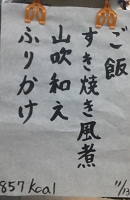 ご飯
すき焼き風煮
山吹和え
ふりかけ
857kcal
11/13